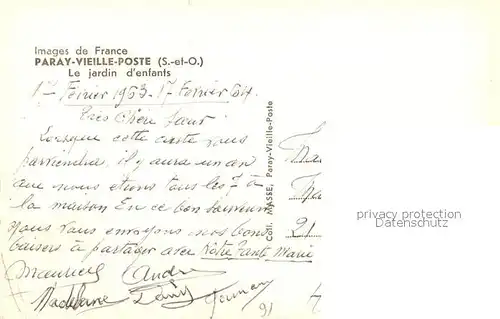 Images de France
PARAY-VIEILLE-POSTE (S.-et-O.)
Le jardin d'enfants
17 Février 1963 - 17 Février 64.
Très chère Sœur
Lorsque cette carte vous
parviendra, il y aura un an
que nous étions tous les 7 à
la maison En ce bon souvenir
nous vous envoyons nos bons
baisers à partager avec Notre Tante Marie
Maurice André
Madeleine
91
21
Coll. MASSE, Paray-Vieille-Poste
privacy protection
Datenschutz